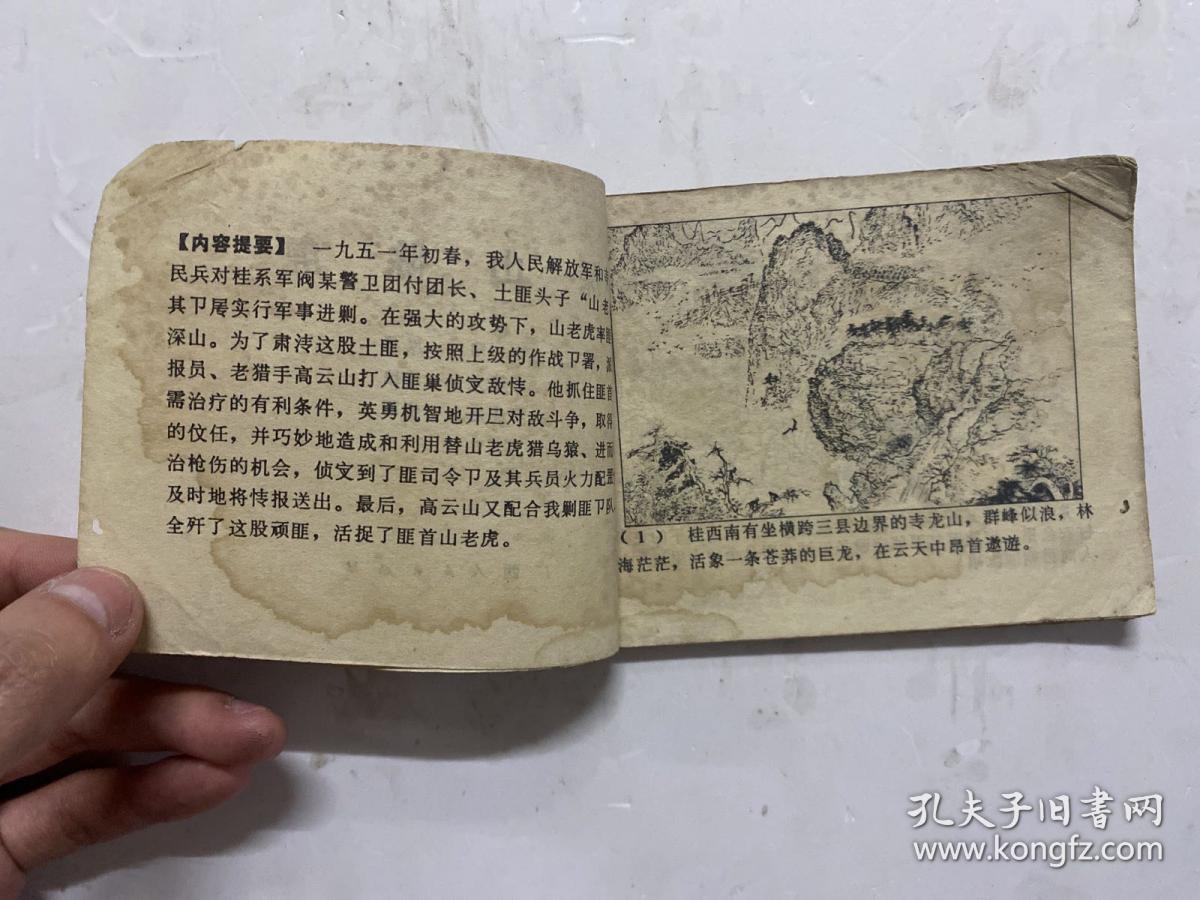 【内容提要】 一九五一年初春，我人民解放军和
民兵对桂系军阀某警卫团付团长、土匪头子“山老
其卩屡实行军事进剿。在强大的攻势下，山老虎率
深山。为了肃涍这股土匪，按照上级的作战卩署，派
报员、老猎手高云山打入匪巢侦察敌情。他抓住匪首
需治疗的有利条件，英勇机智地开尸对敌斗争，取得
的仪任，并巧妙地造成和利用替山老虎猎乌猿、进而
治枪伤的机会，侦察到了匪司令卩及其兵员火力配置
及时地将情报送出。最后，高云山又配合我剿匪卩队
全歼了这股顽匪，活捉了匪首山老虎。
（1） 桂西南有坐横跨三县边界的龙山，群峰似浪，林
海茫茫，活象一条苍莽的巨龙，在云天中昂首遨遊。
孔夫子旧书网
www.kongfz.com